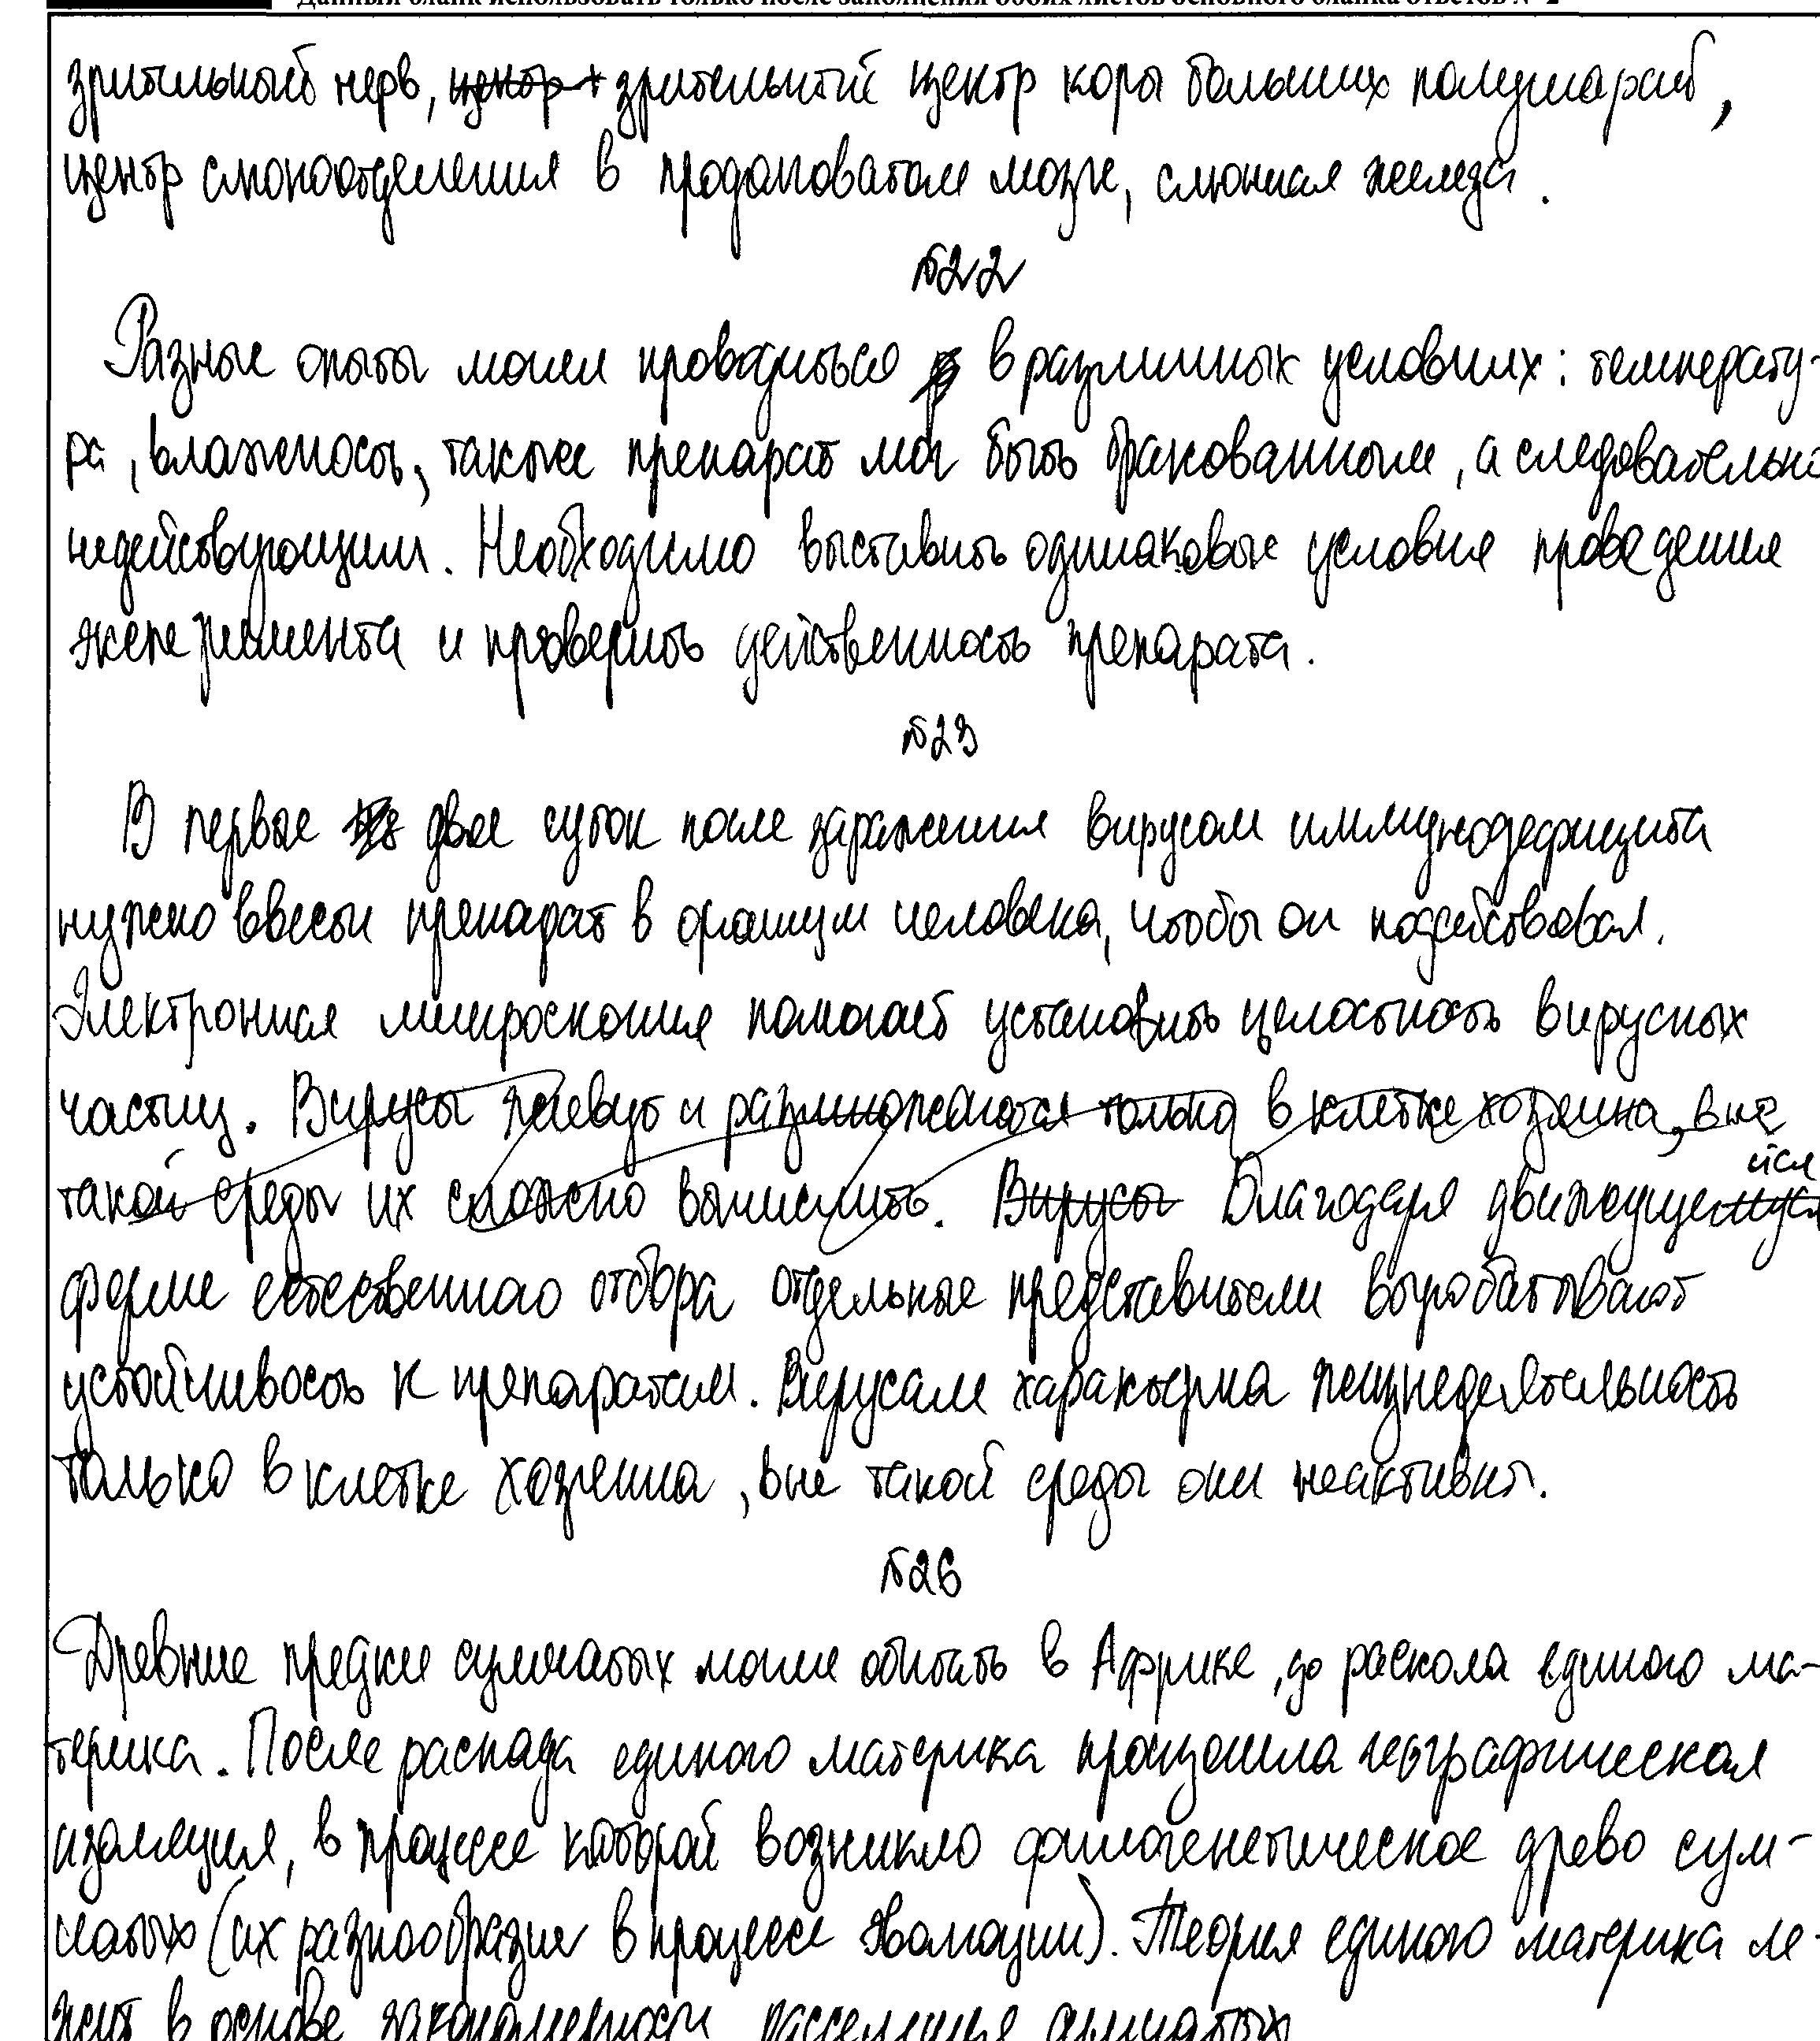 Данный бланк использовать только после заполнения обоих листов основного бланка ответов № 2
зрительный нерв, центр зрительный центр коры больших полушарий,
центр слюноотделения в продолговатом мозге, слюнная железа.
№22
Разные опыты могли проводиться в различных условиях: температу-
ра, влажность, также препарат мог быть бракованным, а следовательно
недействующим. Необходимо выставить одинаковые условия проведения
эксперимента и проверить действенность препарата.
№23
В первые двое суток после заражения вирусом иммунодефицита
нужно ввести препарат в организм человека, чтобы он подействовал.
Электронная микроскопия помогает установить целостность вирусных
частиц. Вирусы живут и размножаются только в клетке хозяина, вне
такой среды их сложно вычислить. Вирусы Благодаря движущейся
форме естественного отбора отдельные представители вырабатывают
устойчивость к препаратам. Вирусам характерна жизнедеятельность
только в клетке хозяина, вне такой среды они неактивны.
№26
Древние предки сумчатых могли обитать в Африке, до раскола единого ма-
терика. После распада единого материка произошла географическая
изоляция, в процессе которой возникло филогенетическое древо сум-
чатых (их разнообразие в процессе эволюции). Теория единого материка ле-
жит в основе закономерности расселения сумчатых